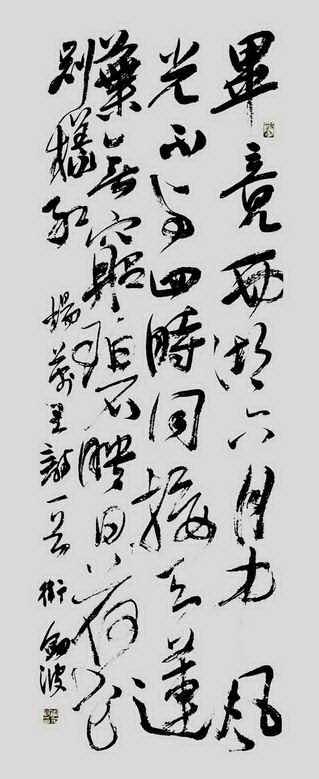 畢竟西湖六月中風
光不与四時同接天蓮
葉無窮碧映日荷花
別樣紅
楊萬里詩一首 衛 波